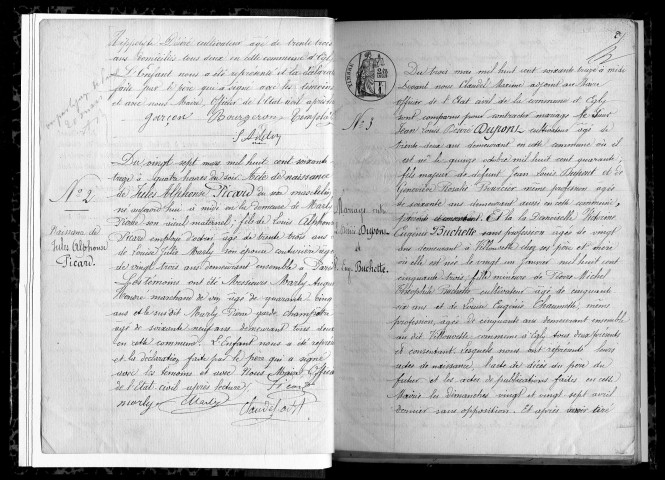 Hippolyte Désiré cultivateur âgé de trente trois
ans domiciliés tous deux en cette commune d'Egly
L'Enfant nous a été représenté et la déclaration
faite par le père qui a signé avec les témoins
et avec nous Maire, Officier de l'Etat civil après lecture
garien Bourgeron
Du vingt sept mars mil huit cent soixante
treize à quatre heures du soir Acte de naissance
de Jules Alphonse Picard du sexe masculin
né aujourd'hui à midi en la demeure de Marly
Pierre son aïeul maternel; fils de Louis Alphonse
Picard employé d'octroi âgé de trente trois ans
et de Louise Julie Marly son épouse couturière âgée
de vingt trois ans demeurant ensemble à Paris
Les témoins ont été Messieurs Marly Auguste
marchand de vin âgé de quarante cinq
ans et le susdit Marly Pierre garde champêtre
âgé de soixante neuf ans demeurant tous deux
en cette commune. L'Enfant nous a été représenté
et la déclaration faite par le père qui a signé
avec les témoins et avec Nous Maire Officier
de l'état civil après lecture. Picard
marly Marly
No 2.
Naissance de
Jules Alphonse
Picard.
No 3
Mariage entre
Dupont
et
Buchette.
Du trois mai mil huit cent soixante treize à midi
Devant nous Claudel Maxime adjoint au Maire
officier de l'Etat civil de la commune d'Egly
sont comparus pour contracter mariage le Sieur
Jean Louis Désiré Dupont cultivateur âgé de
trente deux ans demeurant en cette commune où il
est né le quinze octobre mil huit cent quarante,
fils majeur de défunt Jean Louis Dupont et de
Geneviève Rosalie même profession âgée
de soixante ans demeurant aussi en cette commune,
Et la Demoiselle Victorine
Eugénie Buchette sans profession âgée de vingt
ans demeurant à Villouvette chez ses père et mère
où elle est née le vingt un janvier mil huit cent
cinquante trois, fille mineure de Pierre Michel
Théophile Buchette cultivateur âgé de cinquante
six ans et de Louise Eugénie même
profession, âgée de cinquante ans demeurant ensemble
au dit Villouvette commune d'Egly tous deux présents
et consentant. Lesquels nous ont représenté leurs
actes de naissance, l'acte de décès du père du
futur et les actes de publications faites en cette
Mairie les dimanches vingt et vingt sept avril
dernier sans opposition. Et après avoir lu